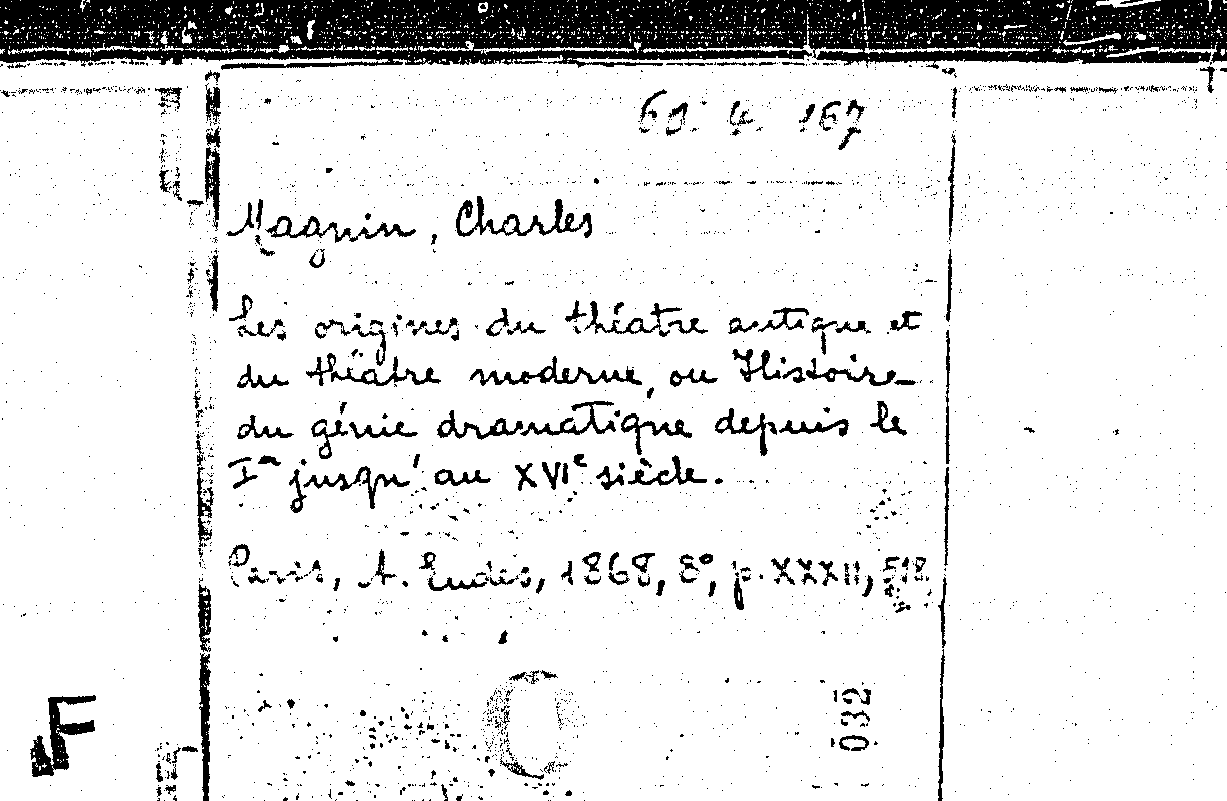 60. 4. 167
Magnin, Charles
Les origines du théatre antique et
du théatre moderne, ou Histoire
du génie dramatique depuis le
Ier jusqu'au XVIe siècle.
Paris, A. Eudes, 1868, 8°, p. XXXII, 518.
C
032
F